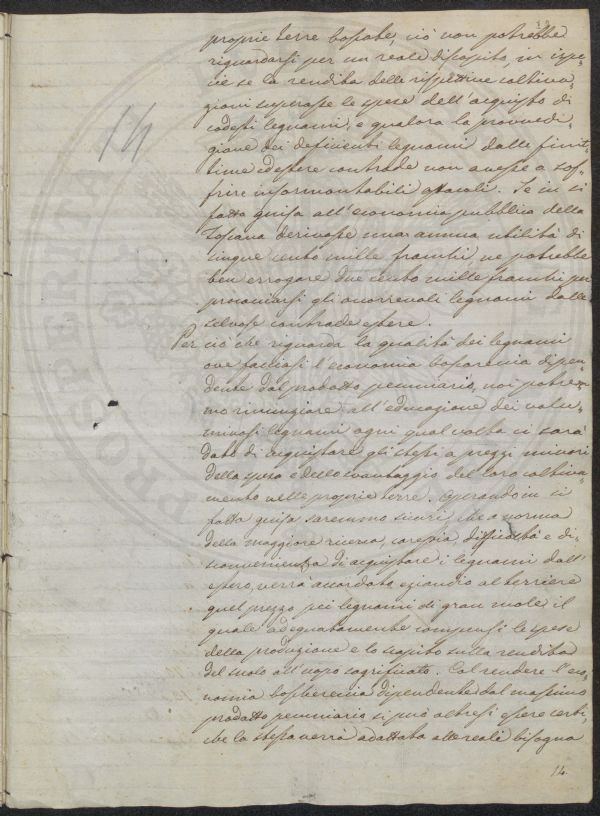 14
proprie terre boscate, ciò non potrebbe
riguardarsi per un reale discapito, in ispe„
cie se la rendita delle rispettive coltiva„
zioni superasse le spese dell'acquisto di
codesti legnami, e qualora la provvedi„
gione dei deficienti legnami dalle finit„
time ed estere contrade non avesse a sof„
frire insormontabili ostacoli. Se in si
fatta guisa all'economia pubblica della
Toscana derivasse una annua utilità di
cinque cento mille franchi, ne potrebbe
ben erogare due cento mille franchi per
procacciarsi gli occorrevoli legnami dalle
selvose contrade estere.
Per ciò che riguarda la qualità dei legnami
ove facciasi l'economia boscareccia dipen„
dente dal prodotto pecuniario, noi potre„
mo rinunziare all'educazione dei volu„
minosi legnami ogni qual volta ci sarà
dato di acquistare gli stessi a prezzi minori
della spesa e dello svantaggio del loro coltiva„
mento nelle proprie terre. Operando in si
fatta guisa saremmo sicuri, che a norma
della maggiore ricerca, carezia, difficoltà e di„
sconvenienza di acquistare i legnami dall'
estero, verrà accordato eziandio al terriere
quel prezzo pei legnami di gran mole, il
quale adeguatamente compensi le spese
della produzione e lo scapito sulla rendita
del suolo all'uopo sagrificato. Col rendere l'eco„
nomia boschereccia dipendente dal massimo
prodotto pecuniario si può altresì essere certi,
che la stessa verrà adattata alle reali bisogna
14.